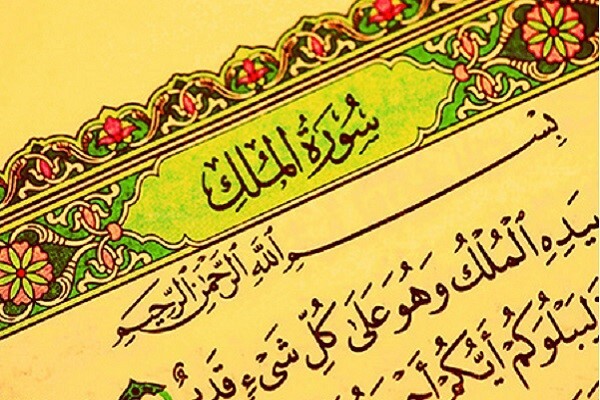 سُورَةُ الْمُلْكِ
بِسْمِ اللَّهِ الرَّحْمَٰنِ الرَّحِيمِ
بِيَدِهِ الْمُلْكُ وَهُوَ عَلَىٰ كُلِّ شَيْءٍ قَدِيرٌ
لِيَبْلُوَكُمْ أَيُّكُمْ